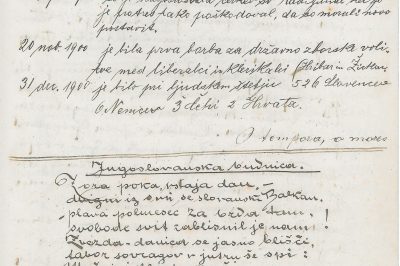 je potres tako poškodoval, da so morali novo
postavit.
20 nob. 1900 je bila prva borba za državno zborska voli-
tve med liberalci in klerikalci
31 dec. 1900 je bilo pri ljudskem štetju 526 Slovencev
6 Nemcev 3 čehi 2 Hrvata.
O tempora, o mores
Jugoslovanska budnica.
Zora poka, vstaja dan, –
dvigni iz sna se slovanski Balkan.
plava polmesec za brda tam, !
svobode svit zablisnil je nam !
Zvezda-danica se jasno blišči,
tabor sovragov v jutru še spi :